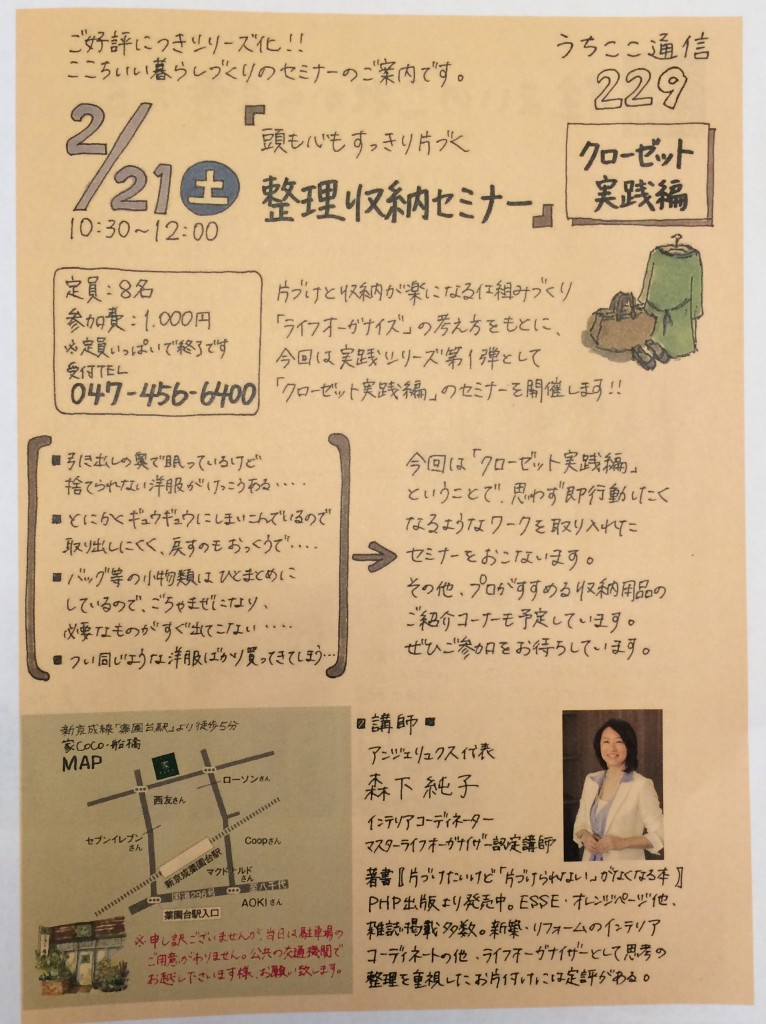 ご好評につきシリーズ化!!
ここちいい暮らしづくりのセミナーのご案内です。
うちここ通信
229
2/21土
10:30~12:00
『頭も心もすっきり片づく
整理収納セミナー』
クローゼット
実践編
定員:8名
参加費:1.000円
※定員いっぱいで終了です
受付TEL
047-456-6400
片づけと収納が楽になる仕組みづくり
「ライフオーガナイズ」の考え方をもとに、
今回は実践シリーズ第1弾として
「クローゼット実践編」のセミナーを開催します!!
■引き出しの奥で眠っているけど
捨てられない洋服がけっこうある‥‥
■とにかくギュウギュウにしまいこんでいるので
取り出しにくく、戻すのもおっくうで‥‥
■バッグ等の小物類はひとまとめに
しているので、ごちゃまぜになり、
必要なものがすぐ出てこない‥‥
■つい同じような洋服ばかり買ってきてしまう…
→
今回は「クローゼット実践編」
ということで、思わず即行動したく
なるようなワークを取り入れた
セミナーをおこないます。
その他、プロがすすめる収納用品の
ご紹介コーナーも予定しています。
ぜひご参加をお待ちしています。
新京成線「薬園台駅」より徒歩5分
家CoCo・船橋
MAP
西友さん
ローソンさん
セブンイレブン
さん
Coopさん
新京成薬園台駅
マクドナルド
さん
国道296号
至八千代
AOKIさん
薬園台駅入口
※申し訳ございませんが、当日は駐車場の
ご用意がありません。公共の交通機関で
お越し下さいます様、お願い致します。
■講師■
アンジェリュクス代表
森下純子
インテリアコーディネーター
マスターライフオーガナイザー認定講師
著書〖片づけたいけど「片づけられない」がなくなる本〗
PHP出版より発売中。ESSE・オレンジページ他、
雑誌掲載多数。新築・リフォームのインテリア
コーディネートの他、ライフオーガナイザーとして思考の
整理を重視したお片付けには定評がある。